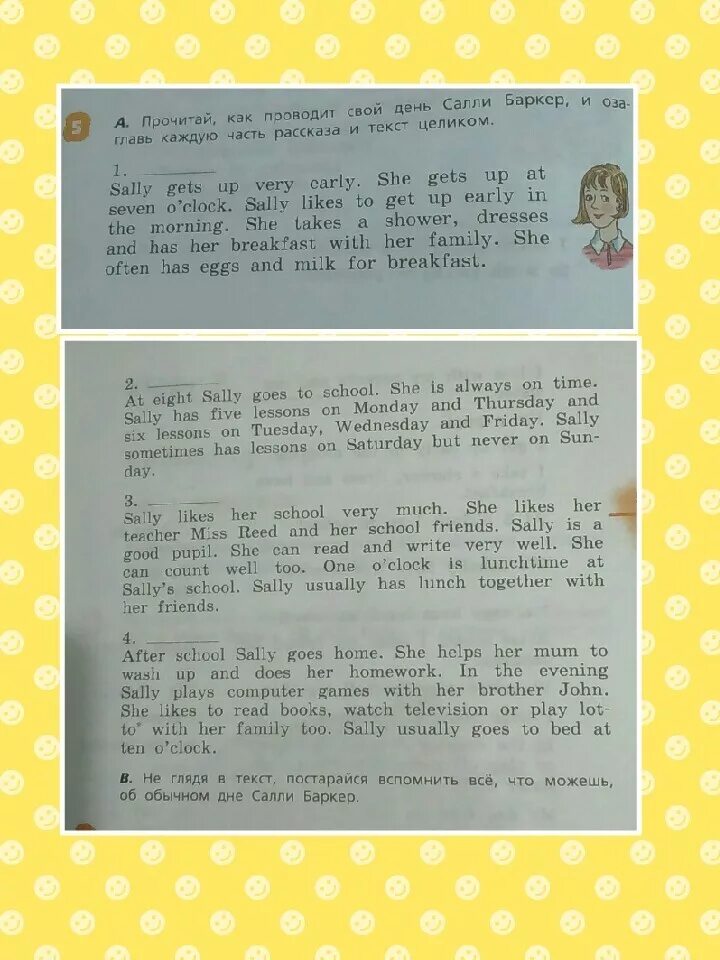 5
А. Прочитай, как проводит свой день Салли Баркер, и оза-
главь каждую часть рассказа и текст целиком.
1.
Sally gets up very early. She gets up at
seven o'clock. Sally likes to get up early in
the morning. She takes a shower, dresses
and has her breakfast with her family. She
often has eggs and milk for breakfast.
2.
At eight Sally goes to school. She is always on time.
Sally has five lessons on Monday and Thursday and
six lessons on Tuesday, Wednesday and Friday. Sally
sometimes has lessons on Saturday but never on Sun-
day.
3.
Sally likes her school very much. She likes her
teacher Miss Reed and her school friends. Sally is a
good pupil. She can read and write very well. She
can count well too. One o'clock is lunchtime at
Sally's school. Sally usually has lunch together with
her friends.
4.
After school Sally goes home. She helps her mum to
wash up and does her homework. In the evening
Sally plays computer games with her brother John.
She likes to read books, watch television or play lot-
to* with her family too. Sally usually goes to bed at
ten o'clock.
В. Не глядя в текст, постарайся вспомнить всё, что можешь,
об обычном дне Салли Баркер.